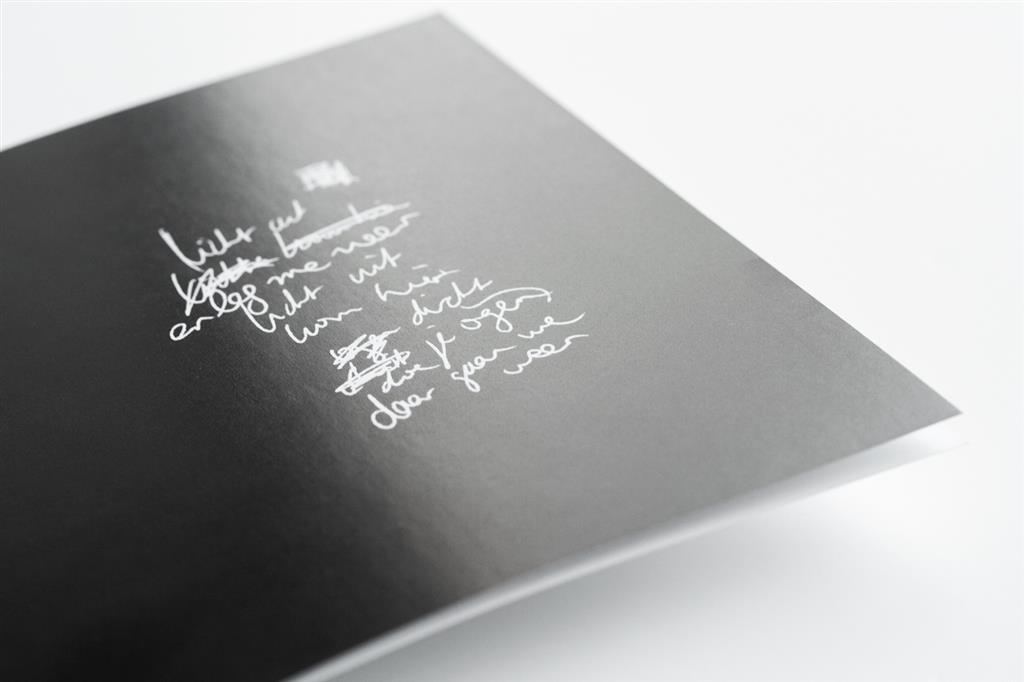 licht uit
en leg me neer
licht uit
kom hier
dicht
doe je ogen
daar gaan we
weer